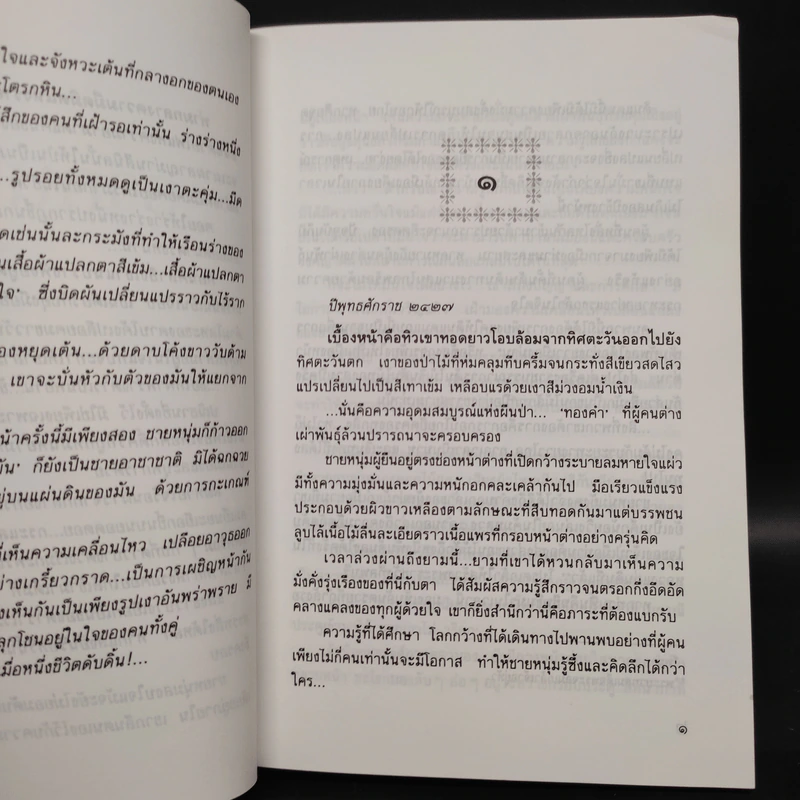 ใจและจังหวะเต้นที่กลางอกของตนเอง
โตรกหิน...
สึกของคนที่เฝ้ารอเท่านั้น ร่างร่างหนึ่ง
...รูปรอยทั้งหมดดูเป็นเงาตะคุ่ม...มิด
ดเช่นนั้นละกระมังที่ทำให้เรือนร่างของ
นเสื้อผ้าแปลกตาสีเข้ม...เสื้อผ้าแปลกตา
ใจ' ซึ่งบิดผันเปลี่ยนแปรราวกับไร้ราก
องหยุดเต้น...ด้วยดาบโค้งขาววับด้าม
เขาจะบั่นหัวกับตัวของมันให้แยกจาก
น้าครั้งนี้มีเพียงสอง ชายหนุ่มก็ก้าวออก
มัน' ก็ยังเป็นชายอาชาชาติ มิได้ฉกฉวย
ยู่บนแผ่นดินของมัน ด้วยการกะเกณฑ์
ที่เห็นความเคลื่อนไหว เปลือยอาวุธออก
ย่างเกรี้ยวกราด...เป็นการเผชิญหน้ากัน
งเห็นกันเป็นเพียงรูปเงาอันพร่าพราย มี
ลุกโชนอยู่ในใจของคนทั้งคู่
มื่อหนึ่งชีวิตดับดิ้น!...
๑
ปีพุทธศักราช ๒๔๒๗
เบื้องหน้าคือทิวเขาทอดยาวโอบล้อมจากทิศตะวันออกไปยัง
ทิศตะวันตก เงาของป่าไม้ที่ห่มคลุมทึบครึ้มจนกระทั่งสีเขียวสดใสว
แปรเปลี่ยนไปเป็นสีเทาเข้ม เหลือบแรด้วยเงาสีม่วงอมน้ำเงิน
...นั่นคือความอุดมสมบูรณ์แห่งผืนป่า... 'ทองคำ' ที่ผู้คนต่าง
เผ่าพันธุ์ล้วนปรารถนาจะครอบครอง
ชายหนุ่มผู้ยืนอยู่ตรงช่องหน้าต่างที่เปิดกว้างระบายลมหายใจแผ่ว
มีทั้งความมุ่งมั่นและความหนักอกคละเคล้ากันไป มือเรียวแข็งแรง
ประกอบด้วยผิวขาวเหลืองตามลักษณะที่สืบทอดกันมาแต่บรรพชน
ลูบไล้เนื้อไม้ลื่นละเอียดราวเนื้อแพรที่กรอบหน้าต่างอย่างครุ่นคิด
เวลาล่วงผ่านถึงยามนี้...ยามที่เขาได้หวนกลับมาเห็นความ
มั่งคั่งรุ่งเรืองของที่นี่กับตา ได้สัมผัสความรู้สึกราวจนตรอกกึ่งอึดอัด
คลางแคลงของทุกผู้ด้วยใจ เขาก็ยิ่งสำนึกว่านี่คือภาระที่ต้องแบกรับ
ความรู้ที่ได้ศึกษา โลกกว้างที่ได้เดินทางไปพานพบอย่างที่ผู้คน
เพียงไม่กี่คนเท่านั้นจะมีโอกาส ทำให้ชายหนุ่มรู้ซึ้งและคิดลึกได้กว่า
ใคร...
๑